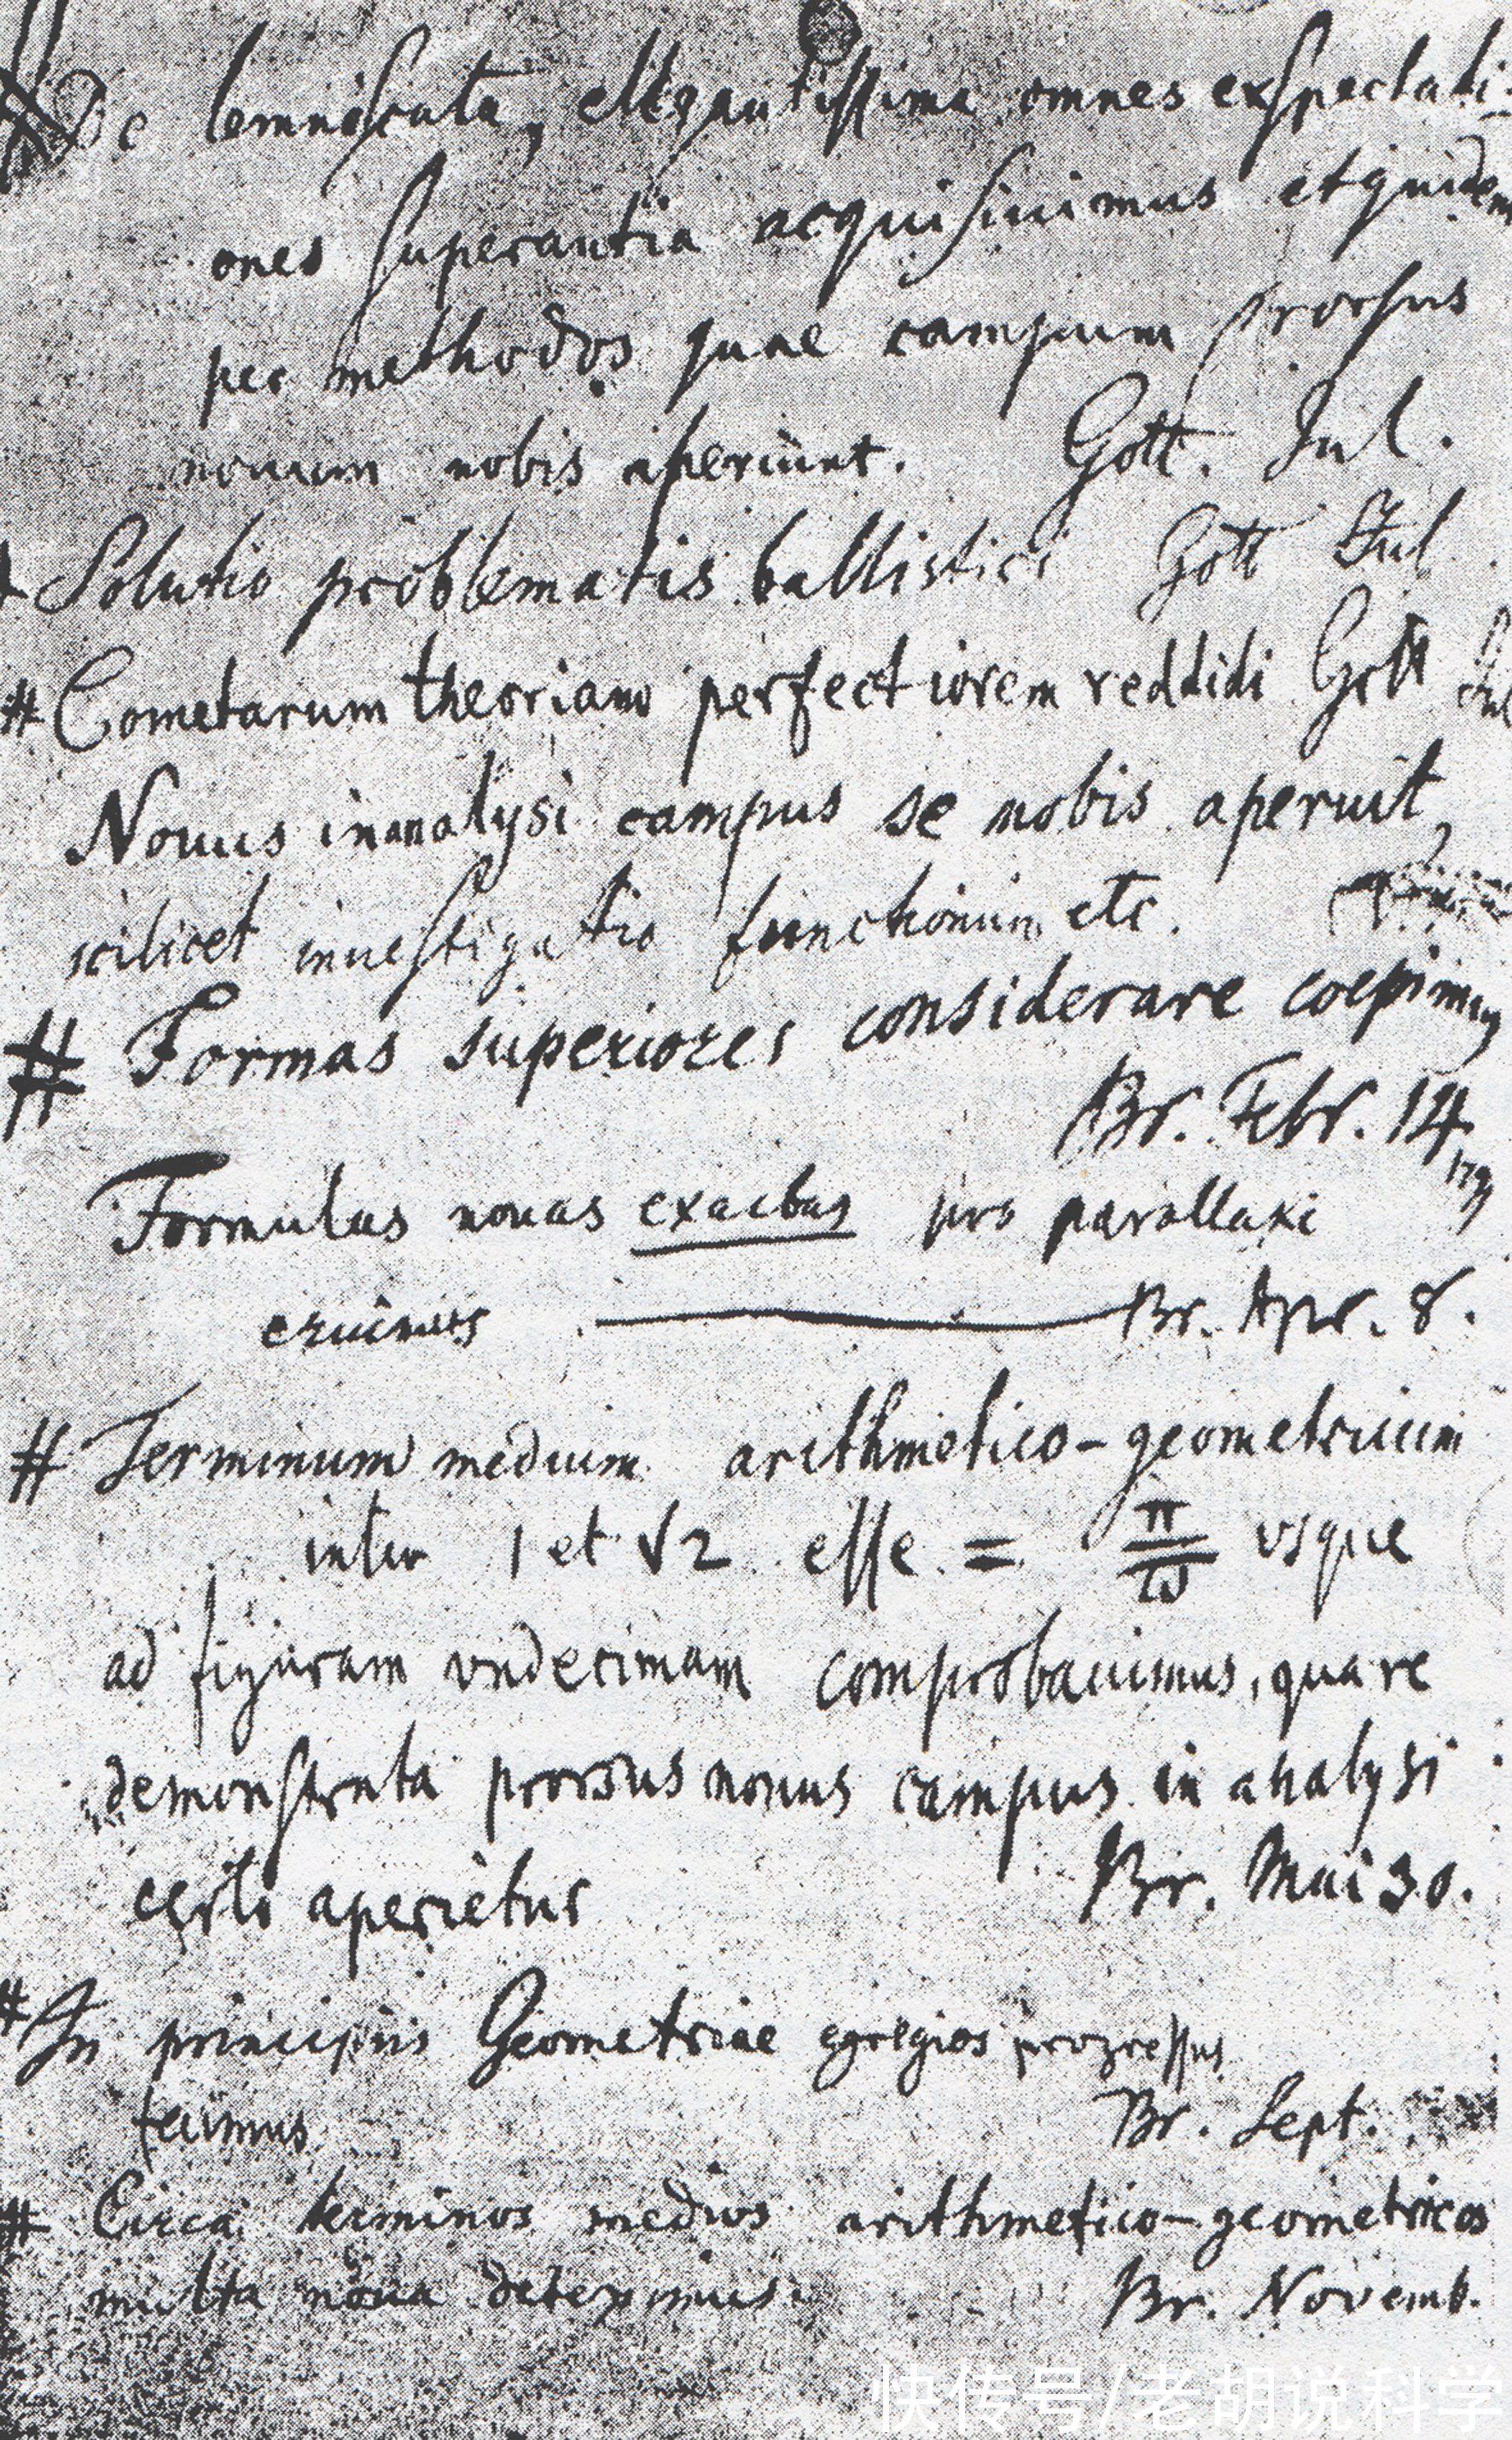 De lemniscata, elegantissima omnes exspectati-
ones superantia acquisiuimus et quidem
per methodos quae campum prorsus
nouum nobis aperiunt. Gott. Jul.
Solutio problematis ballistici Gott Jul.
# Cometarum theoriam perfectiorem reddidi Gott Jul
Nouus in analysi campus se nobis aperuit,
scilicet inuestigatio functionum etc.
# Formas superiores considerare coepimus
Br. Febr. 14
Formulas nouas exactas pro parallaxi
eruimus Br. Apr. 8.
# Terminum medium arithmetico-geometricum
inter 1 et √2 esse = π/ϖ vsque
ad figuram vndecimam comprobauimus, qua re
demonstrata prorsus nouus campus in analysi
certo aperietur Br. Mai 30.
# In principiis Geometriae egregios progressus
fecimus Br. Sept.
# Circa terminos medios arithmetico-geometricos
multa noua deteximus. Br. Novemb.
快传号/老胡说科学